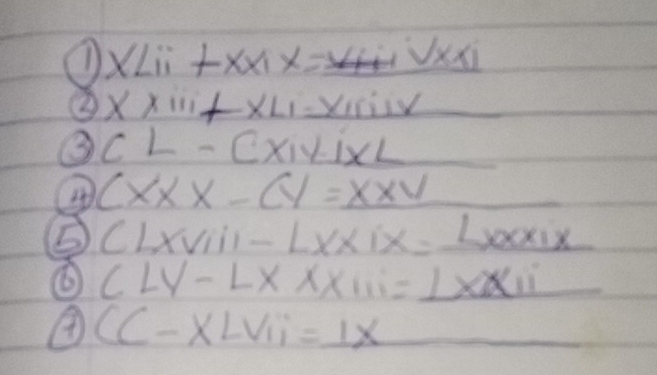 ① XLii + xxix = Vxxi
② X Xiii + XLi = Viiiiv
③ C L - CXiV = ixL
④ CXXX - CV = XXV
⑤ CLXViii - LXXix = Lxxxix
⑥ CLV - LX XXiii = LXXii
⑦ CC - XLVii = IX